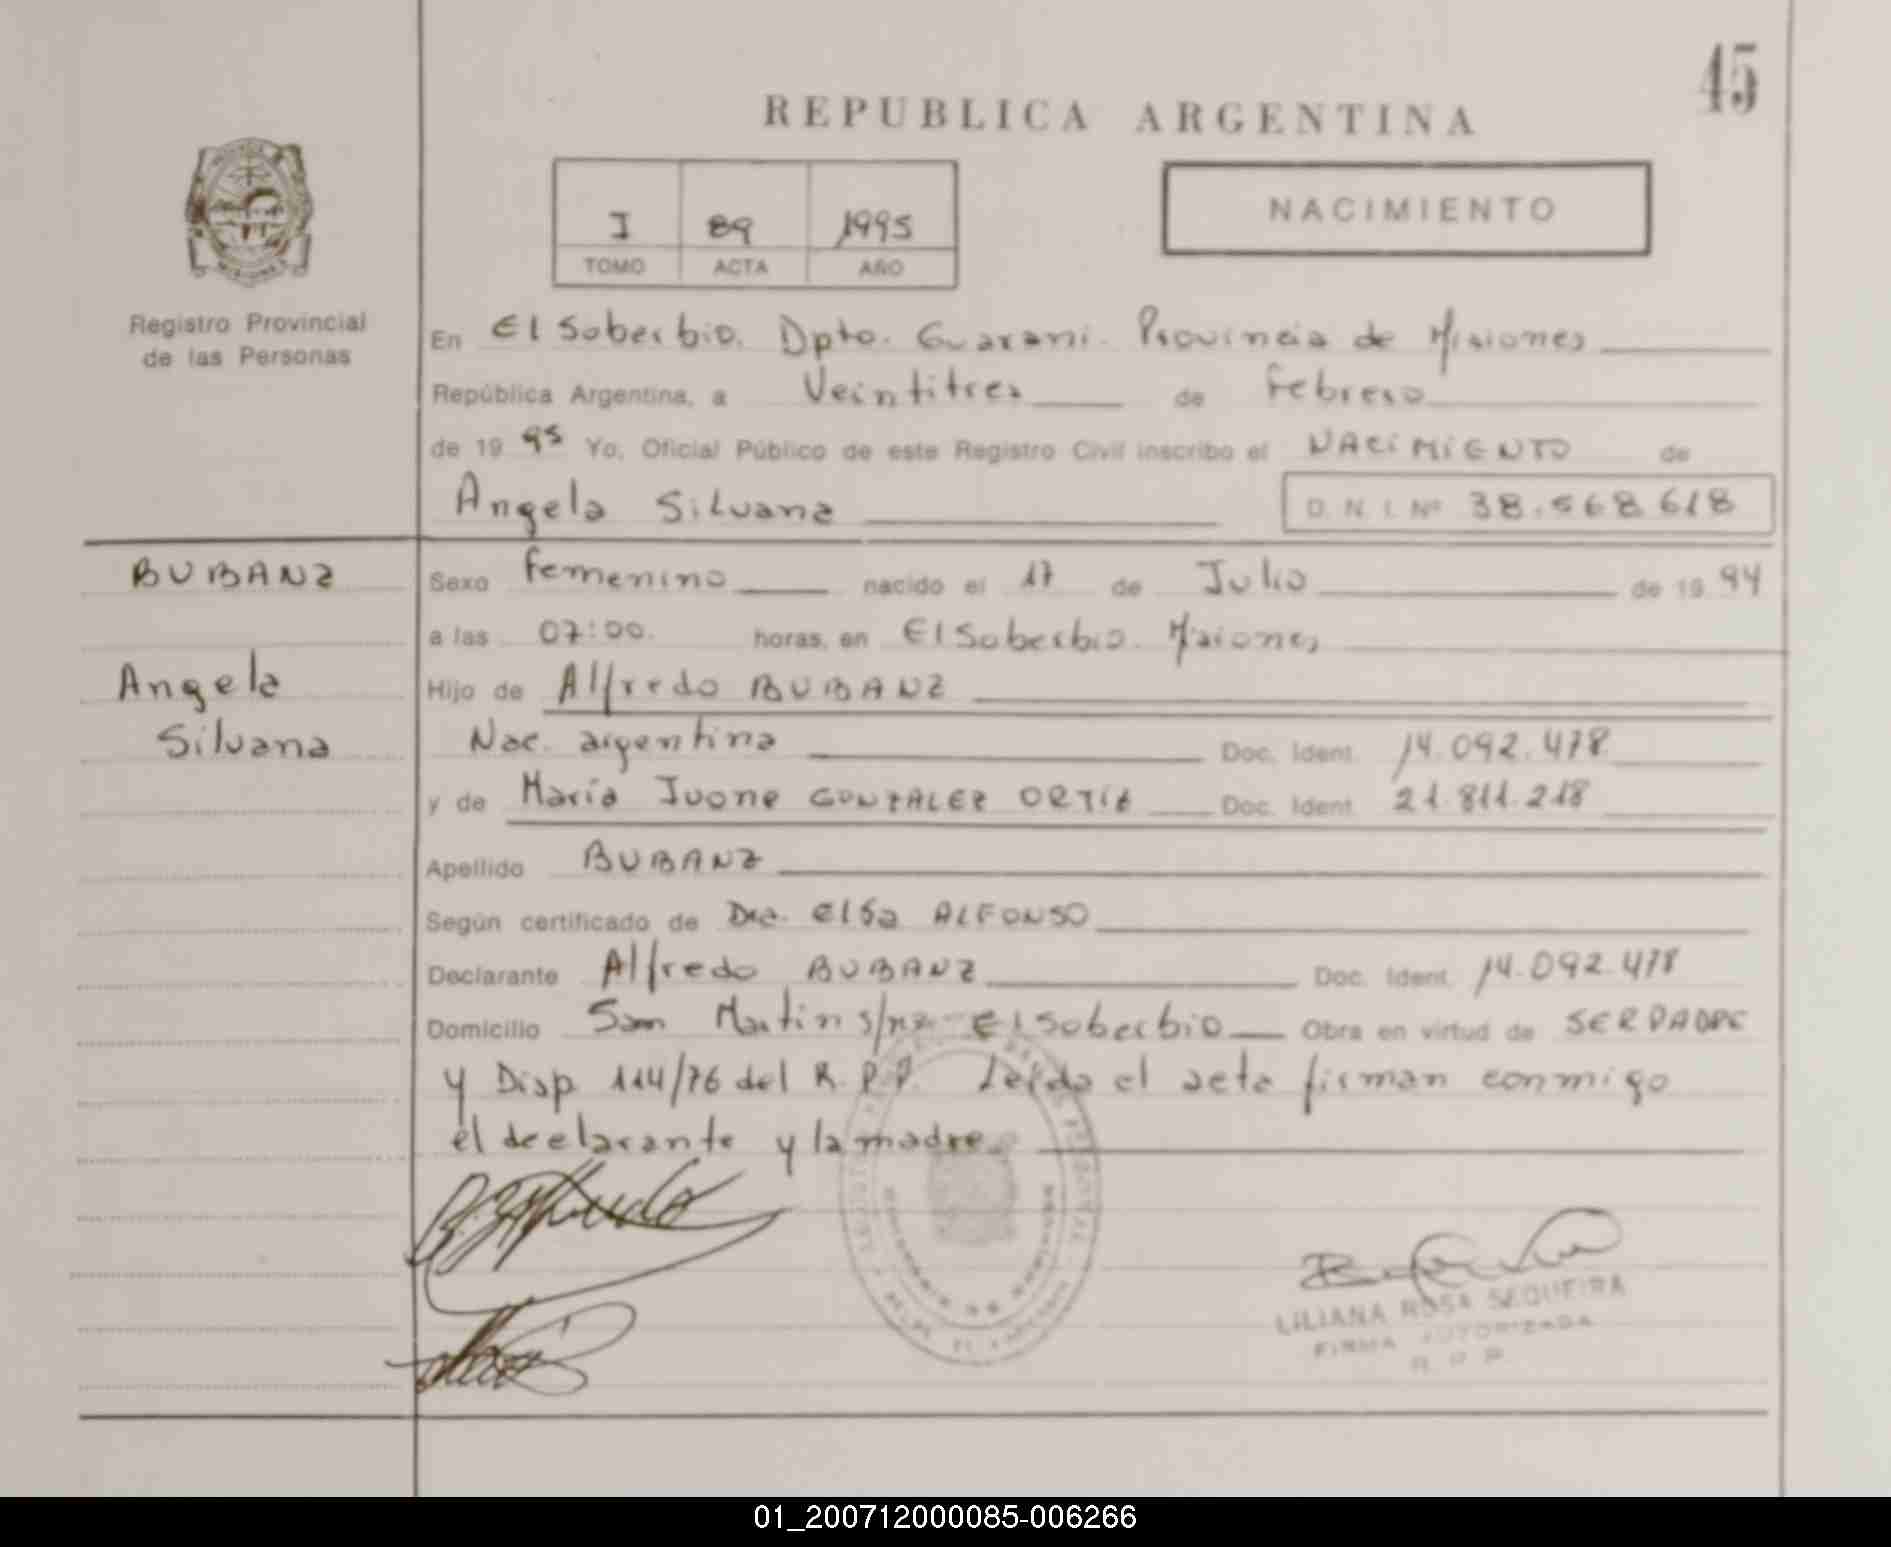 45
REPUBLICA ARGENTINA
I 89 1995
TOMO ACTA AÑO
NACIMIENTO
Registro Provincial
de las Personas
En El Soberbio. Dpto. Guarani. Provincia de Misiones
República Argentina, a Veintitres de febrero
de 19 95 Yo, Oficial Público de este Registro Civil inscribo el NACIMIENTO de
Angela Silvana
D. N. I. Nº 38.568.618
BUBANZ
Angela
Silvana
Sexo femenino nacido el 17 de Julio de 19 94
a las 07:00. horas, en El Soberbio. Misiones
Hijo de Alfredo BUBANZ
Nac. argentina Doc. Ident. 14.092.478
y de María Ivone GONZALEZ ORTIZ Doc. Ident. 21.811.218
Apellido BUBANZ
Según certificado de Dra. Elsa ALFONSO
Declarante Alfredo BUBANZ Doc. Ident. 14.092.478
Domicilio San Martin s/nº - El Soberbio Obra en virtud de SER PADRE
y Disp. 114/76 del R.P.P. Leída el acta firman conmigo
el declarante y la madre.
LILIANA ROSA SEQUEIRA
FIRMA AUTORIZADA
R P P
01_200712000085-006266